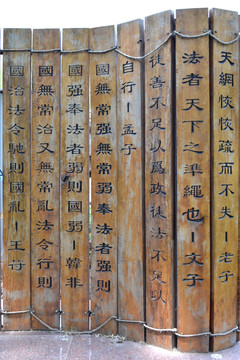 天網恢恢疏而不失－老子
法者天下之準繩也－文子
徒善不足以爲政徒法不足以
自行－孟子
國無常強無常弱奉法者強則
國强奉法者弱則國弱－韓非
國無常治又無常亂法令行則
國治法令馳則國亂－王符